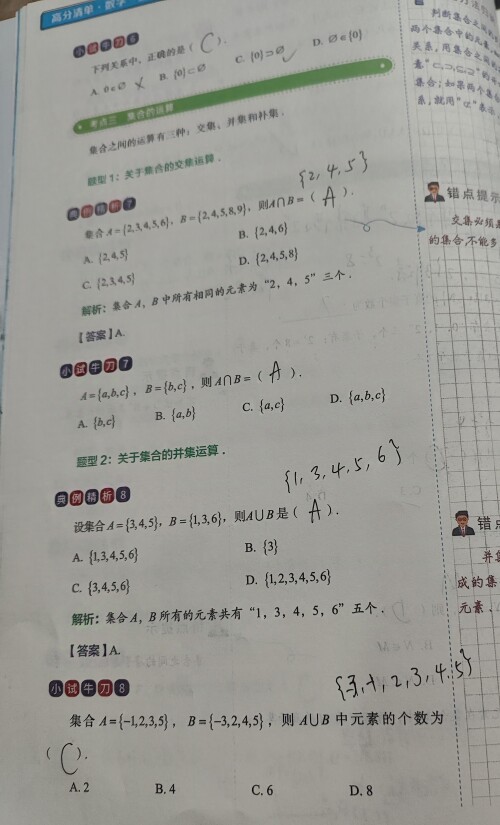 高分清单·数学
小试牛刀6
下列关系中，正确的是（ C ）.
A. 0∈∅ B. {0}⊂∅ C. {0}⊃∅ D. ∅∈{0}
考点三 集合的运算
集合之间的运算有三种：交集、并集和补集.
题型1：关于集合的交集运算.
典例精析7
{2, 4, 5}
集合A={2,3,4,5,6}，B={2,4,5,8,9}，则A∩B=（ A ）.
A. {2,4,5} B. {2,4,6}
C. {2,3,4,5} D. {2,4,5,8}
解析：集合A，B中所有相同的元素为“2，4，5”三个.
【答案】A.
小试牛刀7
A={a,b,c}，B={b,c}，则A∩B=（ A ）.
A. {b,c} B. {a,b} C. {a,c} D. {a,b,c}
题型2：关于集合的并集运算.
{1, 3, 4, 5, 6}
典例精析8
设集合A={3,4,5}，B={1,3,6}，则A∪B是（ A ）.
A. {1,3,4,5,6} B. {3}
C. {3,4,5,6} D. {1,2,3,4,5,6}
解析：集合A，B所有的元素共有“1，3，4，5，6”五个.
【答案】A.
小试牛刀8
集合A={-1,2,3,5}，B={-3,2,4,5}，则A∪B中元素的个数为
（ C ）.
A. 2 B. 4 C. 6 D. 8
判断集合之
两个集合中的元素
关系，用集合之间的
集合；如果两个集合
错点提示
交集必须是
的集合，不能多
错点
并集
成的集
元素，